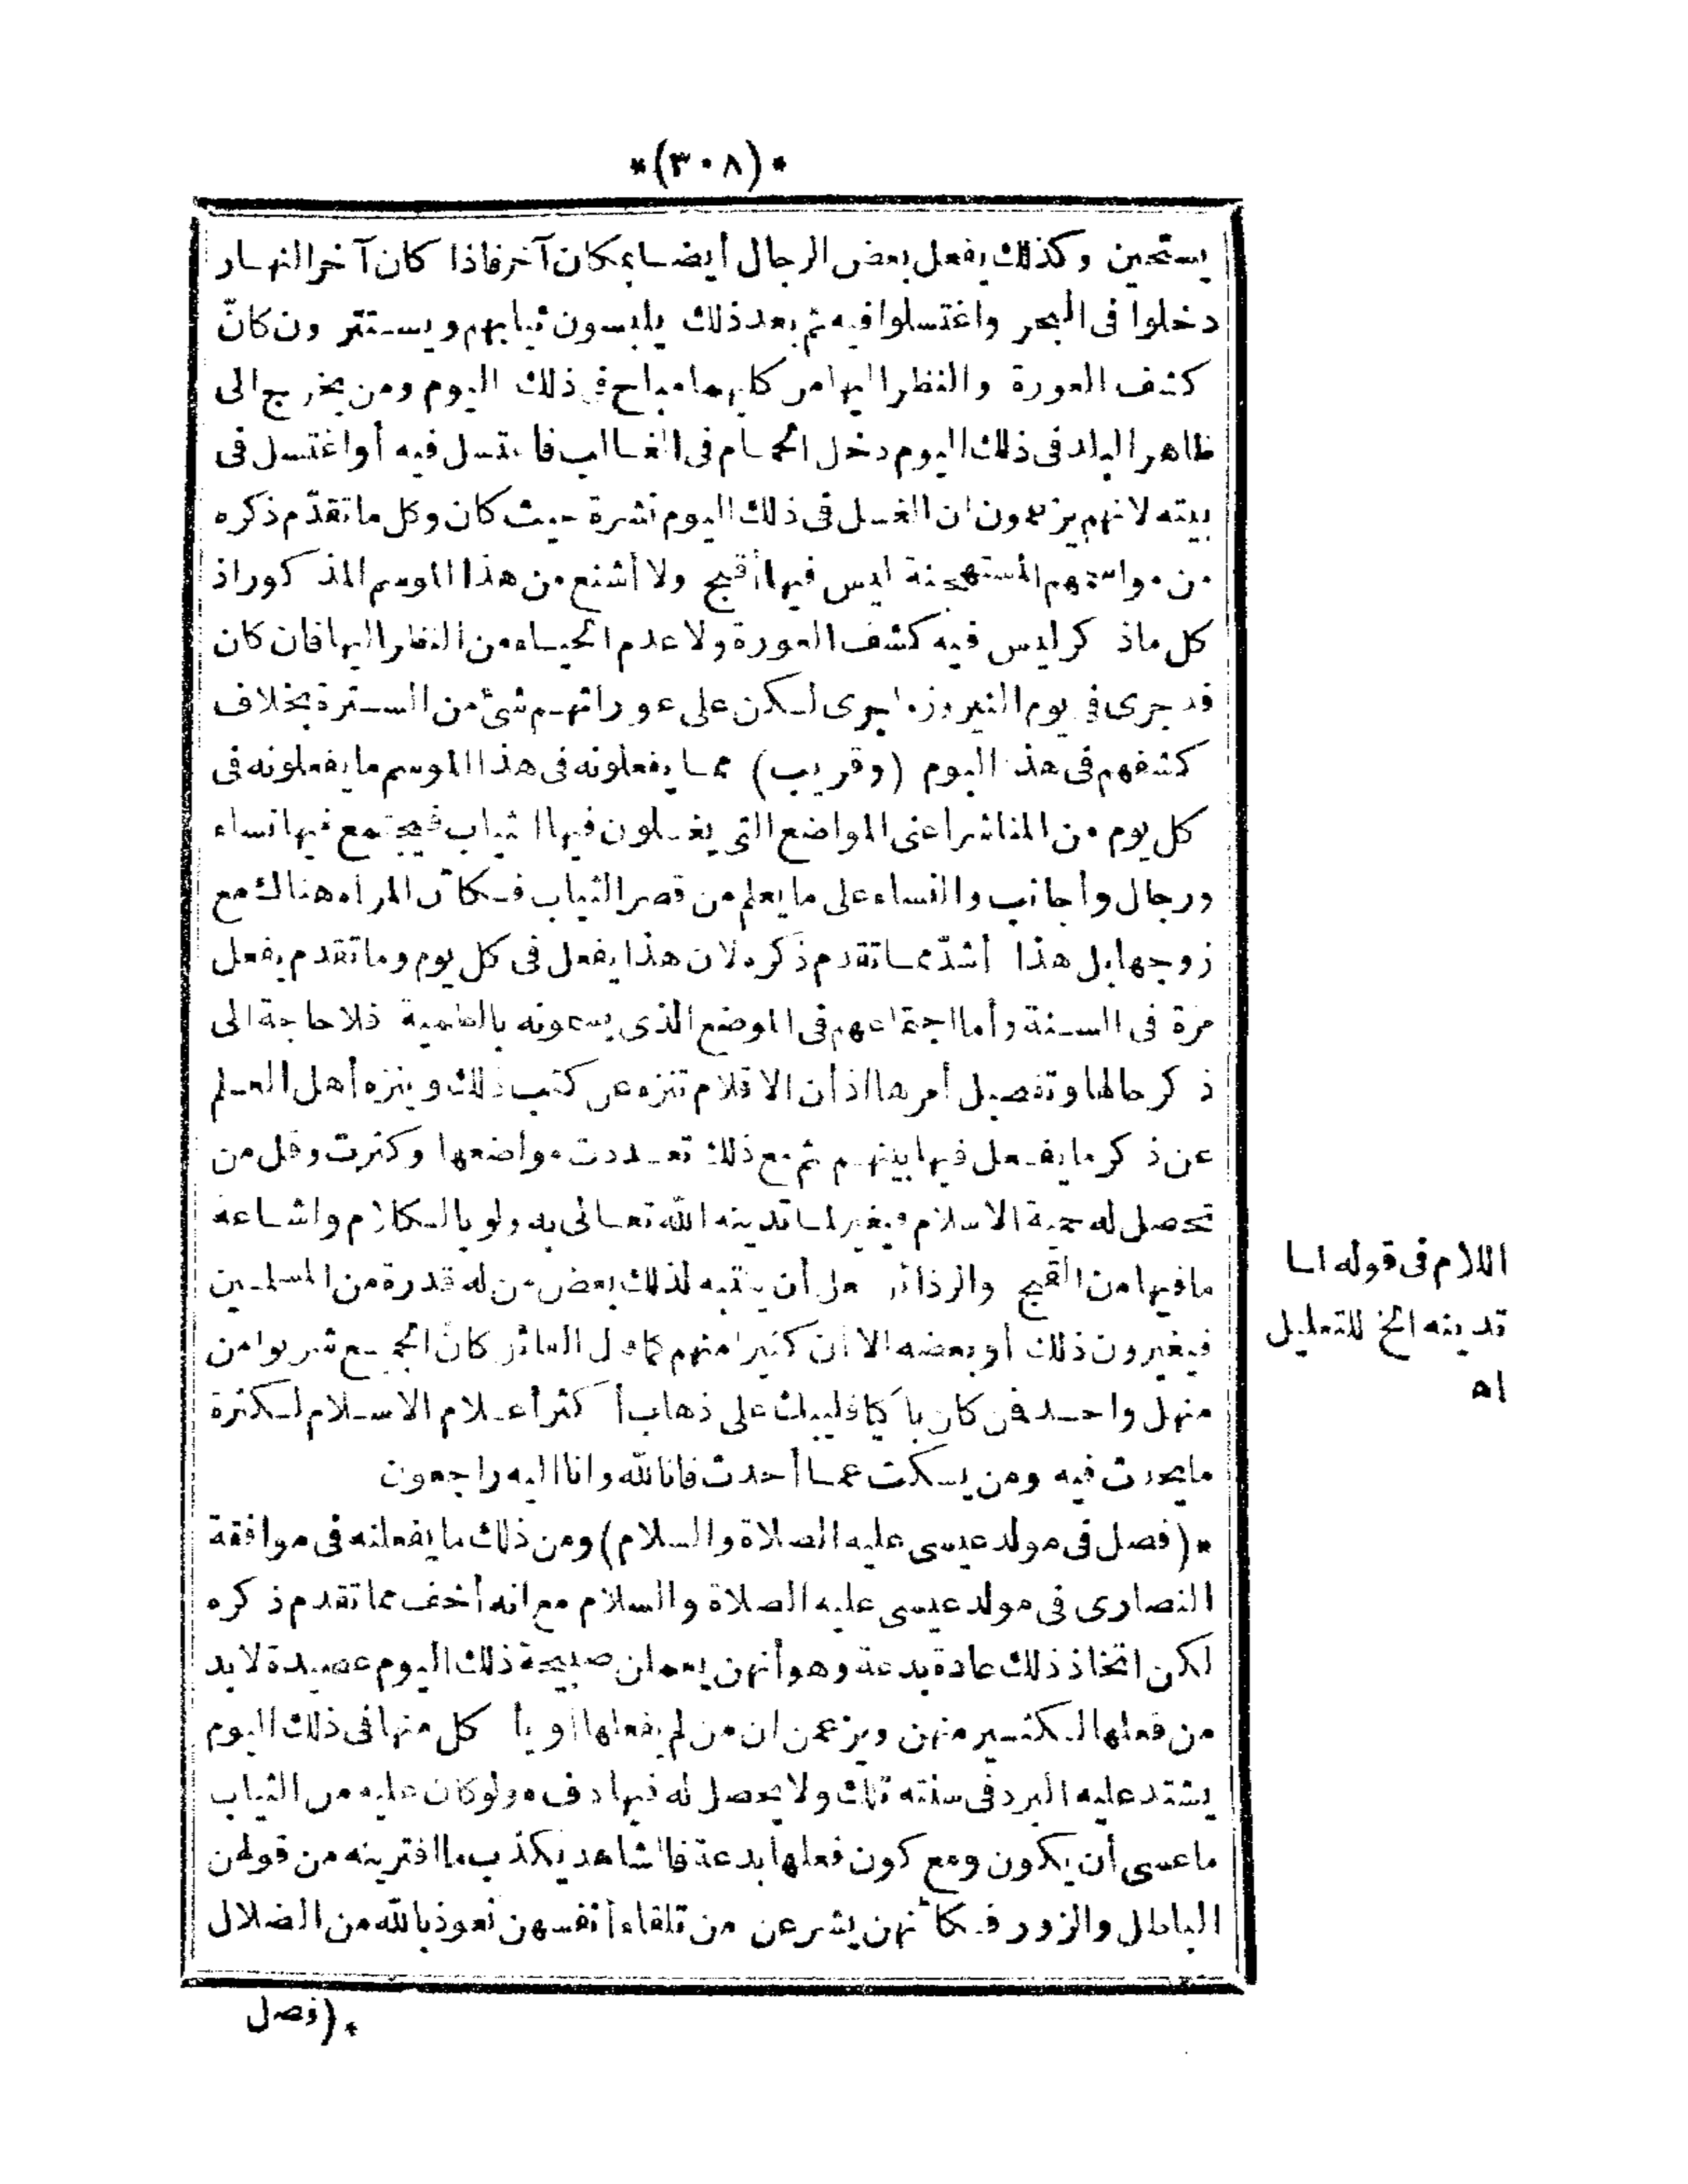 *(٣٠٨)*
يستحين وكذلك يفعل بعض الرجال أيضا بمكان آخر فاذا كان آخر النهار
دخلوا فى البحر واغتسلوا فيه ثم بعد ذلك يلبسون ثيابهم ويستترون كانّ
كشف العورة والنظر اليها من كليهما مباح فى ذلك اليوم ومن يخرج الى
ظاهر البلد فى ذلك اليوم دخل الحمام فى الغالب فاغتسل فيه أو اغتسل فى
بيته لانهم يزعمون ان الغسل فى ذلك اليوم نشرة حيث كان وكل ما تقدّم ذكره
من مواسمهم المستهجنة ليس فيها أقبح ولا أشنع من هذا الموسم المذكور اذ
كل ما ذكر ليس فيه كشف العورة ولا عدم الحياء من النظر اليها فان كان
قد جرى فى يوم النيروز ما جرى لكن على عوراتهم شئ من السترة بخلاف
كشفهم فى هذا اليوم (وقريب) مما يفعلونه فى هذا الموسم ما يفعلونه فى
كل يوم من المناشر اعنى المواضع التى يغسلون فيها الثياب فيجتمع فيها نساء
ورجال وأجانب والنساء على ما يعلم من قصر الثياب فكأن المرأه هناك مع
زوجها بل هذا أشدّ مما تقدم ذكره لان هذا يفعل فى كل يوم وما تقدم يفعل
مرة فى السنة وأما اجتماعهم فى الموضع الذى يسمونه فلا حاجة الى
ذكر حالها وتفصيل أمرها اذ أن الاقلام تنزه عن كتب ذلك وينزه أهل العلم
عن ذكر ما يفعل فيها بينهم ثم مع ذلك تعددت مواضعها وكثرت وقل من
تحصل له حمية الاسلام فيغير لما تدينه الله تعالى به ولو بالكلام واشاعة
ما فيها من القبح والرذائل لعل أن ينتبه لذلك بعض من له قدرة من المسلمين
فيغيرون ذلك أو بعضه الا أن كثيرا منهم كما قال القائل كان الجميع شربوا من
منهل واحد فمن كان باكيا فليبك على ذهاب أكثر أعلام الاسلام لكثرة
ما يحدث فيه ومن يسكت عما أحدث فانا لله وانا اليه راجعون
*(فصل فى مولد عيسى عليه الصلاة والسلام) ومن ذلك ما يفعلنه فى موافقة
النصارى فى مولد عيسى عليه الصلاة والسلام مع انه أخف مما تقدم ذكره
لكن اتخاذ ذلك عادة بدعة وهو أنهن يعملن صبيحة ذلك اليوم عصيدة لا بد
من فعلها لكثير منهن ويزعمن ان من لم يفعلها أو يأكل منها فى ذلك اليوم
يشتد عليه البرد فى سنته تلك ولا يحصل له فيها دفء ولو كان عليه من الثياب
ما عسى أن يكون ومع كون فعلها بدعة فالشاهد يكذب ما افترينه من قولهن
الباطل والزور فكأنهن يشرعن من تلقاء أنفسهن نعوذ بالله من الضلال
*(فصل
اللام فى قوله لما
تدينه الخ للتعليل
اه